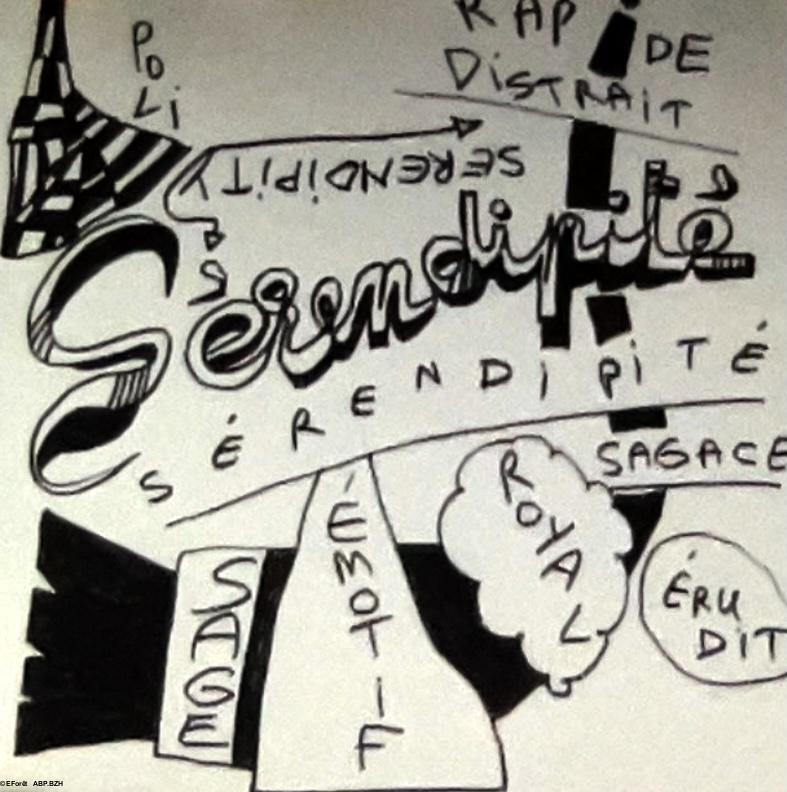 RAPiDE
DiSTRAiT
POLi
SERENDiPiTY
Serendipité
SÉRENDiPiTÉ
SAGACE
ROYAL
ÉMOTiF
SAGE
ÉRUDiT
©EForêt ABP.BZH